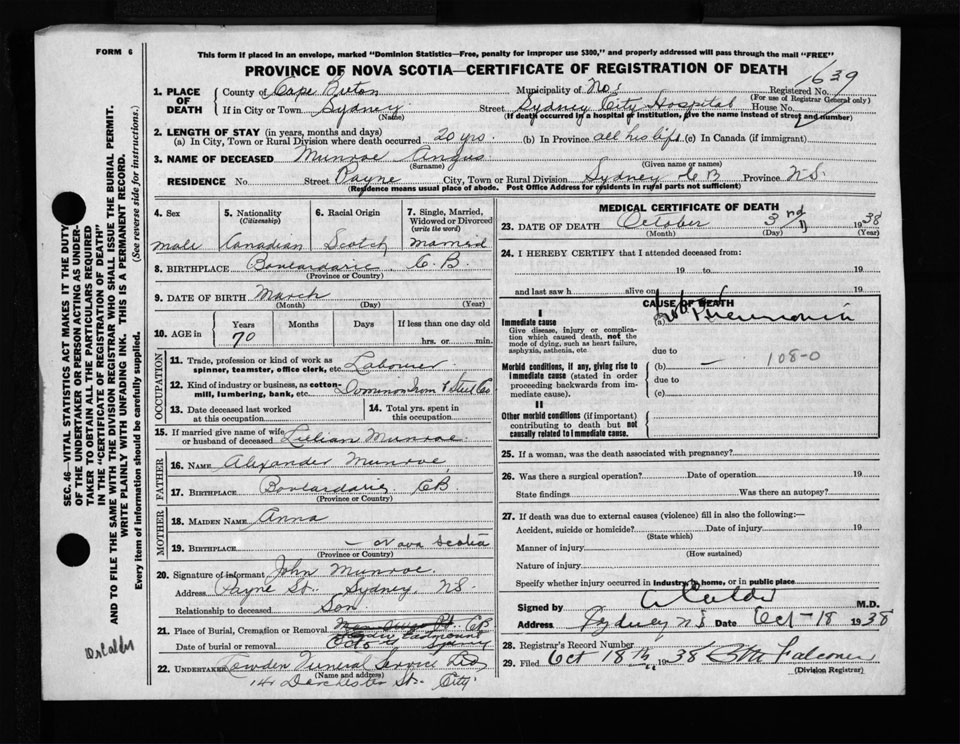 FORM 6
This form if placed in an envelope, marked "Dominion Statistics—Free, penalty for improper use $300," and properly addressed will pass through the mail "FREE"
PROVINCE OF NOVA SCOTIA—CERTIFICATE OF REGISTRATION OF DEATH
1639
1. PLACE OF DEATH
County of Cape Breton Municipality of No: Registered No.
(For use of Registrar General only)
If in City or Town Sydney Street Sydney City Hospital House No.
(Name) (If death occurred in a hospital or institution, give the name instead of street and number)
2. LENGTH OF STAY (in years, months and days)
(a) In City, Town or Rural Division where death occurred 20 yrs. (b) In Province all his life (c) In Canada (if immigrant)
3. NAME OF DECEASED Munroe Angus
(Surname) (Given name or names)
RESIDENCE No. Street Payne City, Town or Rural Division Sydney C B Province N.S.
(Residence means usual place of abode. Post Office Address for residents in rural parts not sufficient)
4. Sex
male
5. Nationality
(Citizenship)
Canadian
6. Racial Origin
Scotch
7. Single, Married, Widowed or Divorced
(write the word)
Married
8. BIRTHPLACE Boulardarie, C.B.
(Province or Country)
9. DATE OF BIRTH March
(Month) (Day) (Year)
10. AGE in Years Months Days If less than one day old
70 hrs. or min.
OCCUPATION
11. Trade, profession or kind of work as spinner, teamster, office clerk, etc. Labourer
12. Kind of industry or business, as cotton-mill, lumbering, bank, etc. Dominion Iron & Steel Co
13. Date deceased last worked at this occupation
14. Total yrs. spent in this occupation
15. If married give name of wife or husband of deceased Lillian Munroe
FATHER
16. NAME Alexander Munroe
17. BIRTHPLACE Boulardarie, CB
(Province or Country)
MOTHER
18. MAIDEN NAME Anna
19. BIRTHPLACE — Nova Scotia
(Province or Country)
20. Signature of informant John Munroe
Address Payne St. Sydney, N.S.
Relationship to deceased Son
21. Place of Burial, Cremation or Removal CB
Date of burial or removal Oct 6 Sydney
22. UNDERTAKER Cowden Funeral Service Ltd
(Name and address)
141 Dorchester St. City
MEDICAL CERTIFICATE OF DEATH
23. DATE OF DEATH October 3rd 1938
(Month) (Day) (Year)
24. I HEREBY CERTIFY that I attended deceased from:
19 to 19
and last saw h alive on 19
CAUSE OF DEATH
I
Immediate cause
Give disease, injury or complication which caused death, not the mode of dying, such as heart failure, asphyxia, asthenia, etc.
(a) Pneumonia
due to
Morbid conditions, if any, giving rise to immediate cause (stated in order proceeding backwards from immediate cause).
(b) — 108-0
due to
(c)
II
Other morbid conditions (if important) contributing to death but not causally related to immediate cause.
25. If a woman, was the death associated with pregnancy?
26. Was there a surgical operation? Date of operation 19
State findings Was there an autopsy?
27. If death was due to external causes (violence) fill in also the following:—
Accident, suicide or homicide? Date of injury 19
(State which)
Manner of injury
(How sustained)
Nature of injury
Specify whether injury occurred in industry, home, or in public place
Signed by A Calder M.D.
Address Sydney N.S Date Oct-18 1938
28. Registrar's Record Number
29. Filed Oct 18th 1938 Falconer
(Division Registrar)
SEC. 46—VITAL STATISTICS ACT MAKES IT THE DUTY OF THE UNDERTAKER OR PERSON ACTING AS UNDERTAKER TO OBTAIN ALL THE PARTICULARS REQUIRED IN THE "CERTIFICATE OF REGISTRATION OF DEATH" AND TO FILE THE SAME WITH THE DIVISION REGISTRAR WHO SHALL ISSUE THE BURIAL PERMIT.
WRITE PLAINLY WITH UNFADING INK. THIS IS A PERMANENT RECORD.
Every item of information should be carefully supplied. (See reverse side for instructions.)